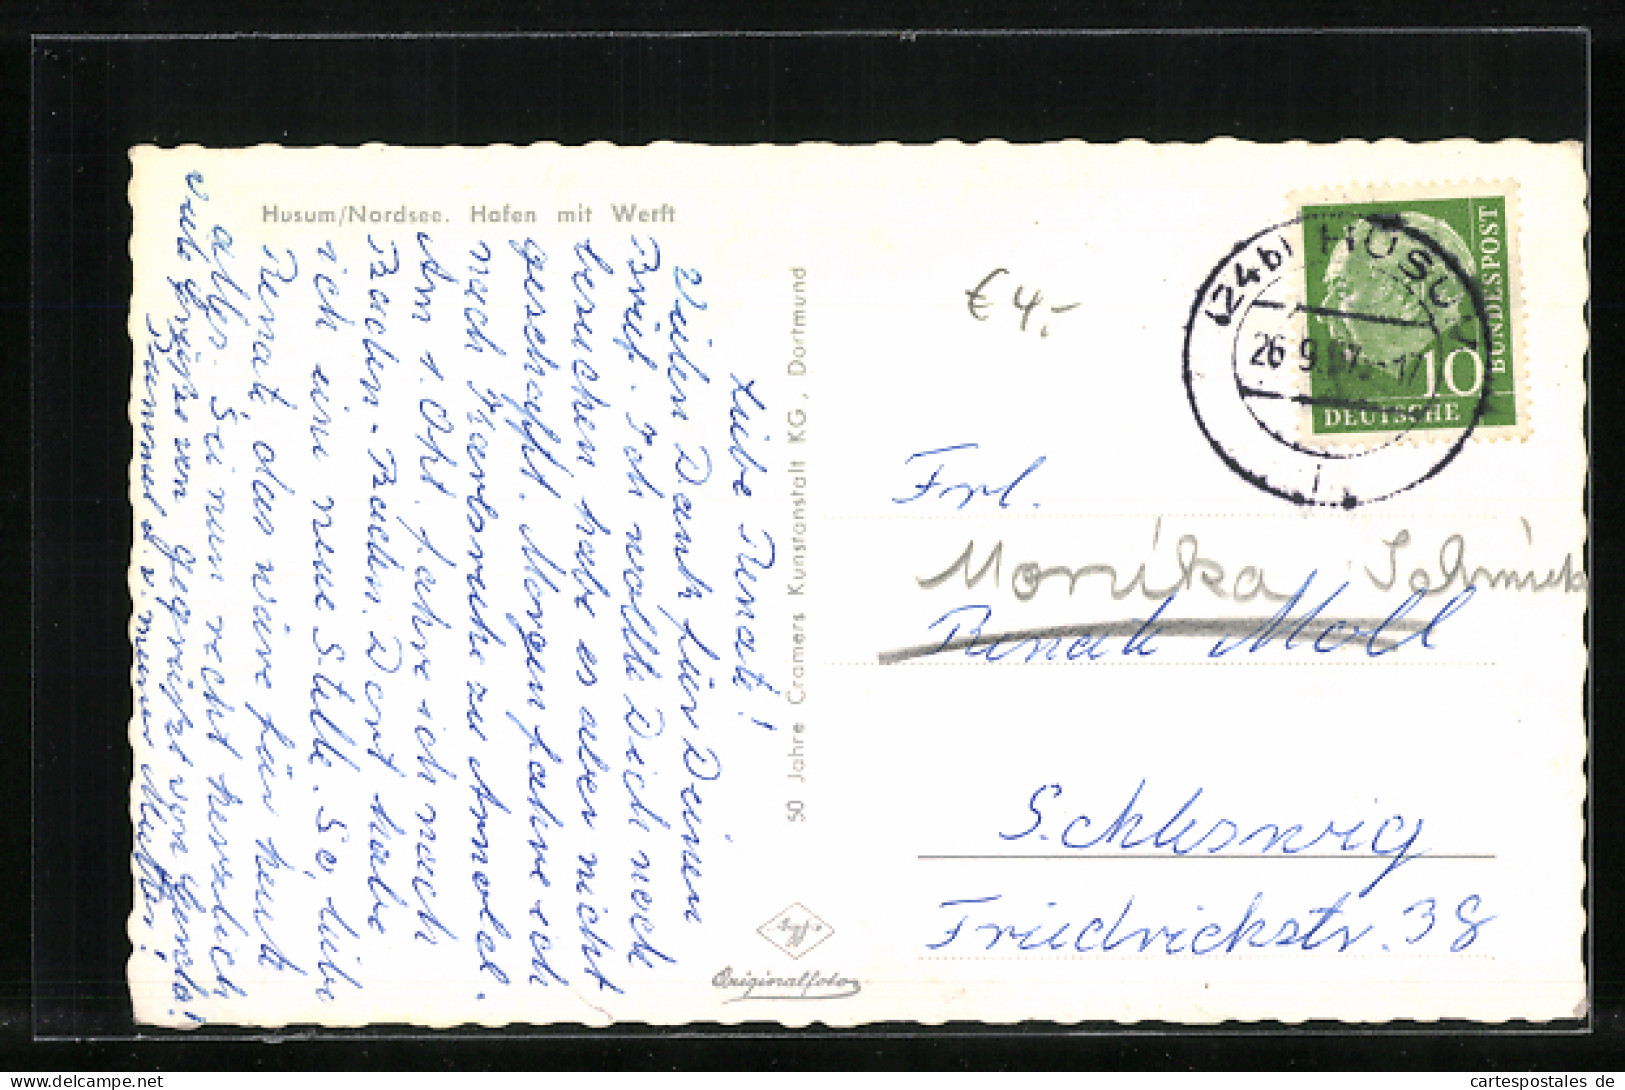 Husum/Nordsee. Hafen mit Werft
Liebe Renate!
Vielen Dank für Deinen
Brief. Ich wollte Dich noch
besuchen habe es aber nicht
geschafft. Morgen fahre ich
nach Karlsruhe zu Arnold.
Am 1. Okt. fahre ich nach
Baden-Baden. Dort habe
ich eine neue Stelle. So, liebe
Renate das wäre für heute
alles. Sei nun recht herzlich
gegrüßt von Gerda!
viele Grüße von
u. v. meiner Mutter!
50 Jahre Cramers Kunstanstalt KG, Dortmund
Agfa
Originalfoto
€ 4.-
(24b) HUSUM
26.9.57.-17
10
DEUTSCHE
BUNDESPOST
Frl.
Monika
Renate Moll
Schleswig
Friedrichstr. 38
www.cartespostales.de